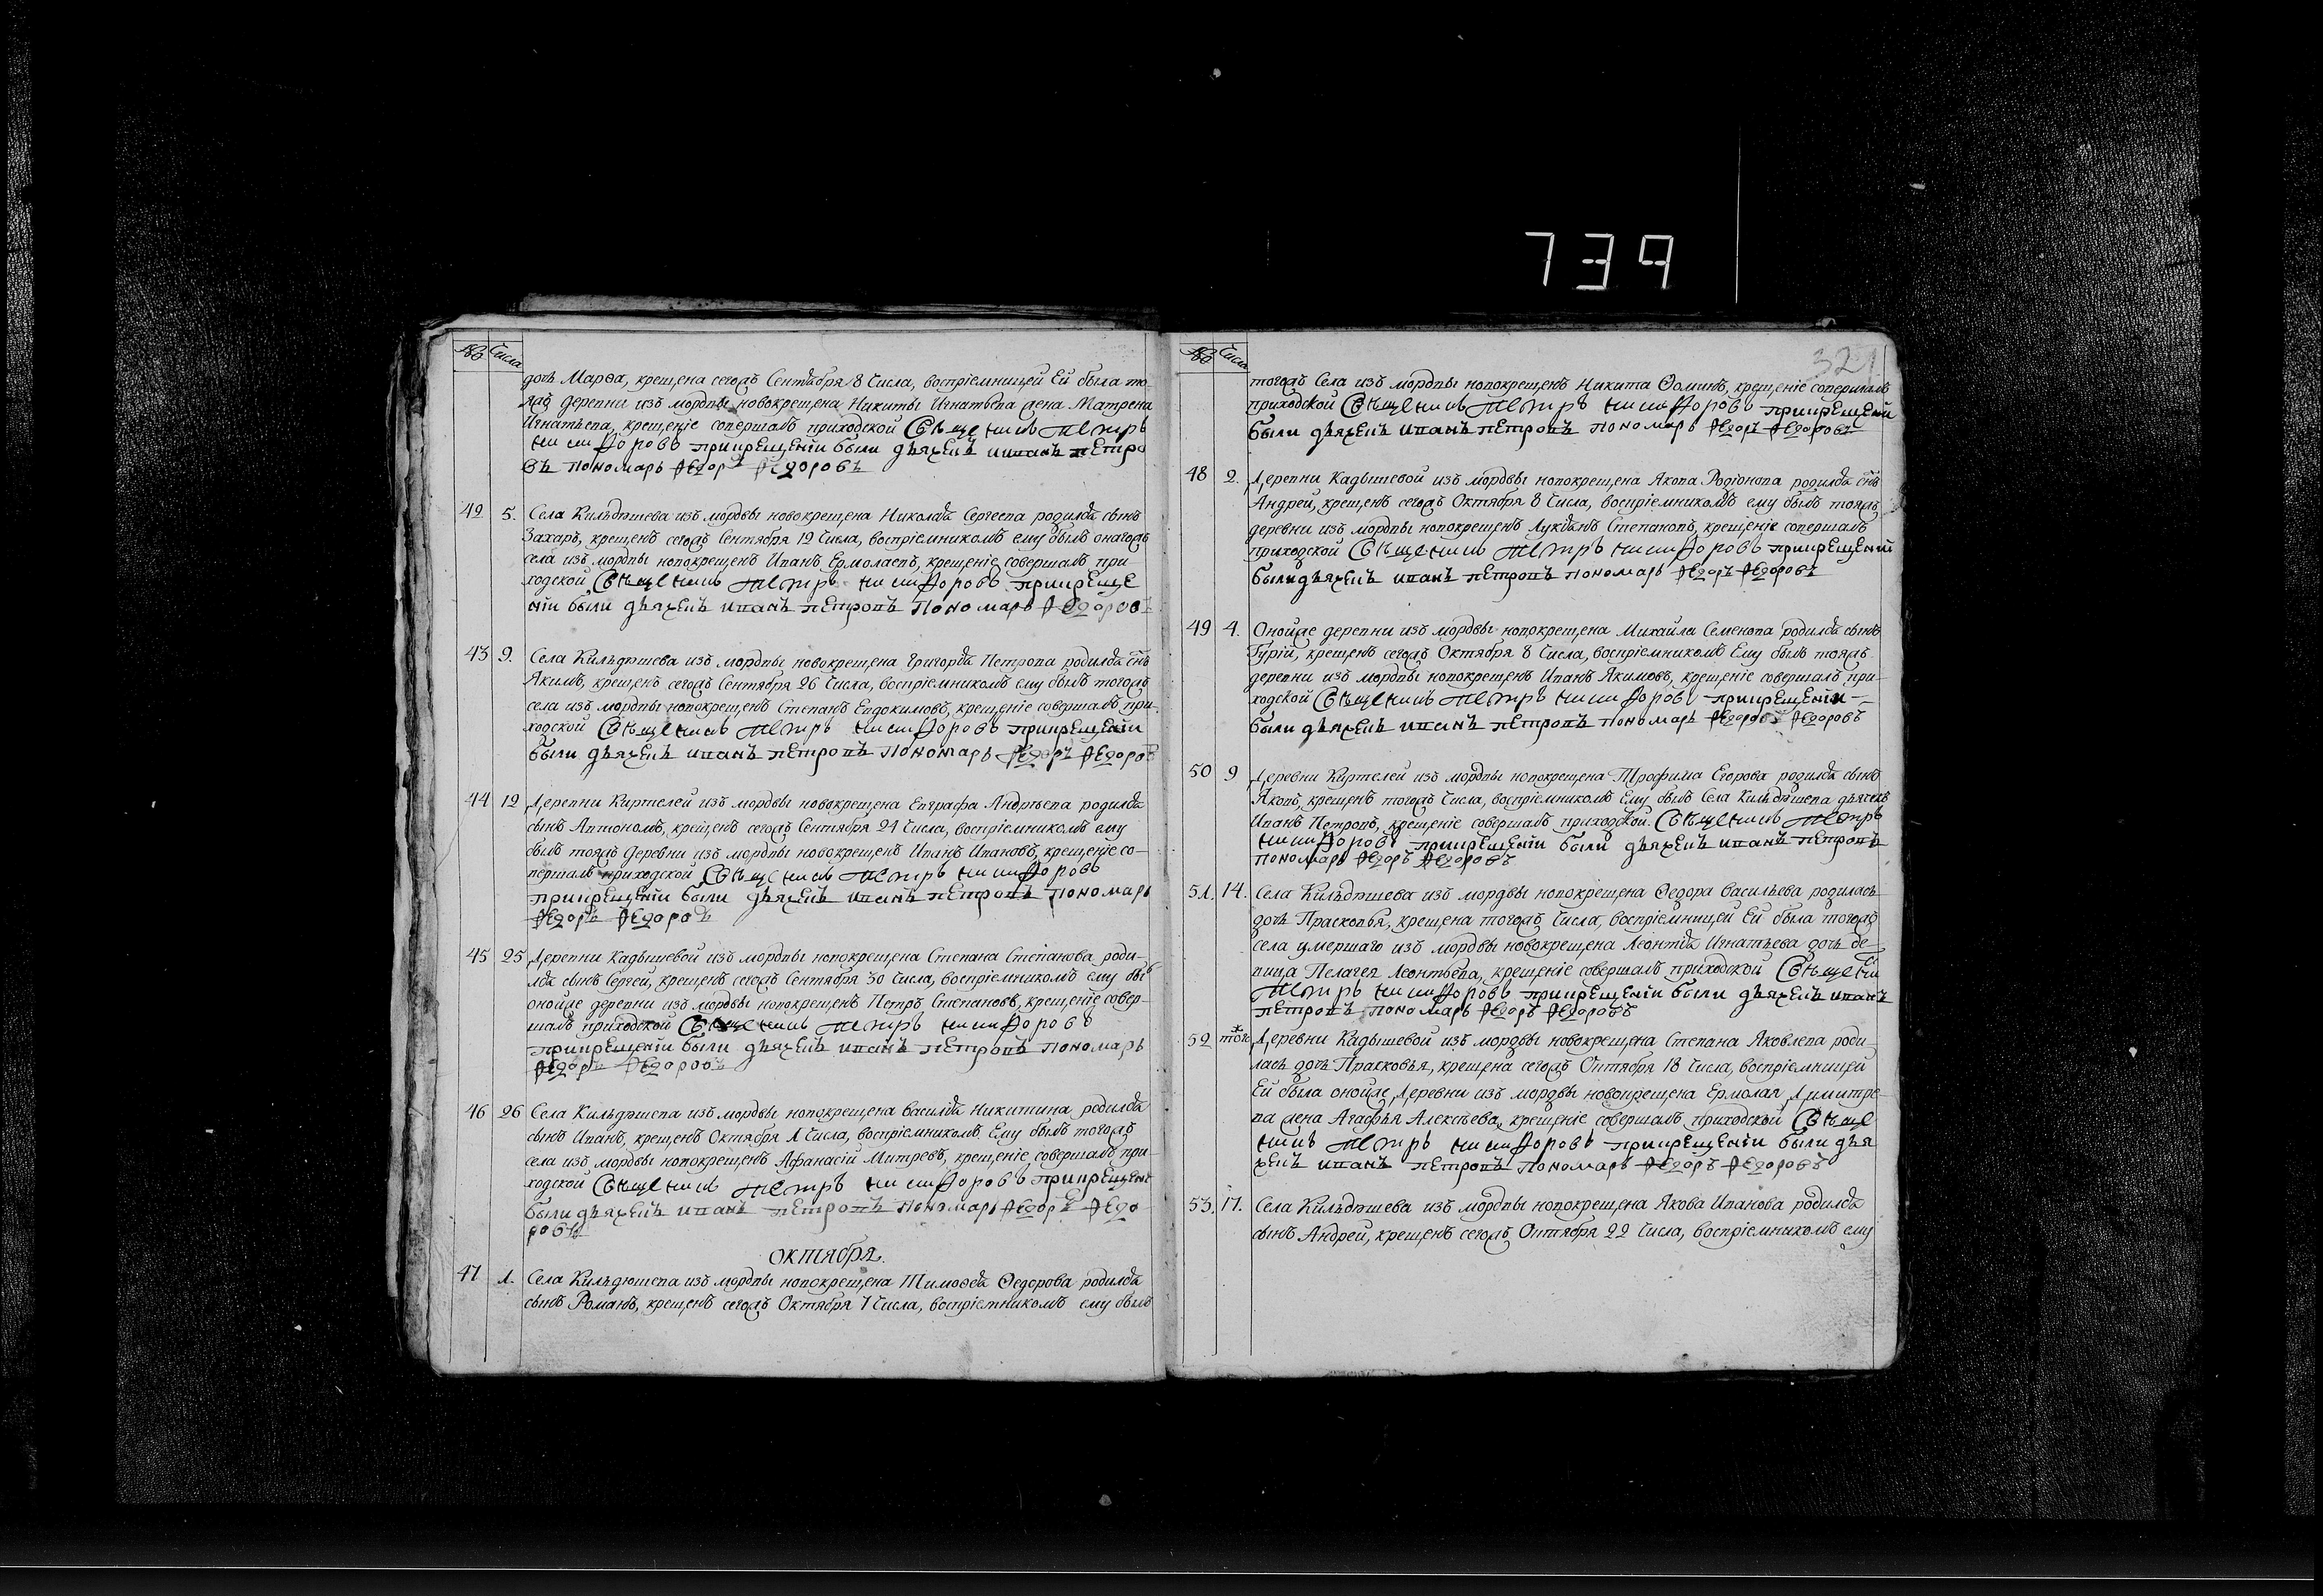 739
№ Числа
дочь Марѳа, крещена сегожъ Сентября 8 Числа, воспріемницей Ей была то-
яжъ деревни изъ мордвы новокрещена Никиты Игнатьева жена Матрена
Игнатьева, крещеніе совершалъ приходской Священникъ Петръ
Никифоровъ прикрещеніи были дьячекъ иванъ петро
въ пономарь Федоръ Федоровъ
42 5. Села Кильдюшева изъ мордвы новокрещена Николая Сергеева родился сынъ
Захаръ, крещенъ сегожъ Сентября 12 Числа, воспріемникомъ ему былъ онагожъ
села изъ мордвы новокрещенъ Иванъ Ермолаевъ, крещеніе совершалъ при
ходской Священникъ Петръ Никифоровъ прикреще
ніи были дьячекъ иванъ петровъ пономарь Федоровъ
43 9. Села Кильдюшева изъ мордвы новокрещена Григорья Петрова родился снъ
Якимъ, крещенъ сегожъ Сентября 26 Числа, воспріемникомъ ему былъ тогожъ
села изъ мордвы новокрещенъ Степанъ Евдокимовъ, крещеніе совершалъ при-
ходской Священникъ Петръ Никифоровъ прикрещеніи
были дьячекъ иванъ петровъ пономарь Федоръ Федоровъ
44 12 Деревни Киртелей изъ мордвы новокрещена Евграфа Андреева родился
сынъ Автономъ, крещенъ сегожъ Сентября 24 Числа, воспріемникомъ ему
былъ тояжъ деревни изъ мордвы новокрещенъ Иванъ Ивановъ, крещеніе со-
вершалъ приходской Священникъ Петръ Никифоровъ
прикрещеніи были дьячекъ иванъ петровъ пономарь
Федоръ Федоровъ
45 25 Деревни Кадышевой изъ мордвы новокрещена Степана Степанова роди-
лся сынъ Сергей, крещенъ сегожъ Сентября 30 Числа, воспріемникомъ ему былъ
онойже деревни изъ мордвы новокрещенъ Петръ Степановъ, крещеніе совер-
шалъ приходской Священникъ Петръ Никифоровъ
прикрещеніи были дьячекъ иванъ петровъ пономарь
Федоръ Федоровъ
46 26 Села Кильдюшева изъ мордвы новокрещена Василія Никитина родился
сынъ Иванъ, крещенъ Октября 1 Числа, воспріемникомъ Ему былъ тогожъ
села изъ мордвы новокрещенъ Афанасій Митревъ, крещеніе совершалъ при-
ходской Священникъ Петръ Никифоровъ прикрещеніи
были дьячекъ иванъ петровъ пономарь Федоръ Федо
ровъ
Октября.
47 1. Села Кильдюшева изъ мордвы новокрещена Тимоѳея Ѳедорова родился
сынъ Романъ, крещенъ сегожъ Октября 7 Числа, воспріемникомъ ему былъ
№ Числа
321
тогожъ Села изъ мордвы новокрещенъ Никита Ѳоминъ, крещеніе совершалъ
приходской Священникъ Петръ Никифоровъ прикрещеніи
были дьячекъ иванъ петровъ пономарь Федоръ Федоровъ
48 2. Деревни Кадышевой изъ мордвы новокрещена Якова Родіонова родился снъ
Андрей, крещенъ сегожъ Октября 8 Числа, воспріемникомъ ему былъ тояжъ
деревни изъ мордвы новокрещенъ Лукіянъ Степановъ, крещеніе совершалъ
приходской Священникъ Петръ Никифоровъ прикрещеніи
были дьячекъ иванъ петровъ пономарь Федоръ Федоровъ
49 4. Онойже деревни изъ мордвы новокрещена Михайла Семенова родился сынъ
Гурій, крещенъ сегожъ Октября 8 Числа, воспріемникомъ Ему былъ тояжъ
деревни изъ мордвы новокрещенъ Иванъ Якимовъ, крещеніе совершалъ при-
ходской Священникъ Петръ Никифоровъ прикрещеніи
были дьячекъ иванъ петровъ пономарь Федоръ Федоровъ
50 9 Деревни Киртелей изъ мордвы новокрещена Трофима Егорова родился сынъ
Яковъ, крещенъ тогожъ Числа, воспріемникомъ Ему былъ Села Кильдюшева дьячекъ
Иванъ Петровъ, крещеніе совершалъ приходской Священникъ Петръ
Никифоровъ прикрещеніи были дьячекъ иванъ петровъ
пономарь Федоръ Федоровъ
51. 14. Села Кильдюшева изъ мордвы новокрещена Ѳедора Васильева родилась
дочь Прасковья, крещена тогожъ Числа, воспріемницей Ей была тогожъ
села умершаго изъ мордвы новокрещена Леонтія Игнатьева дочь де-
вица Пелагея Леонтьева, крещеніе совершалъ приходской Священникъ
Петръ Никифоровъ прикрещеніи были дьячекъ иванъ
петровъ пономарь Федоръ Федоровъ
52 тогож Деревни Кадышевой изъ мордвы новокрещена Степана Яковлева роди-
лась дочь Прасковья, крещена сегожъ Октября 18 Числа, воспріемницей
Ей была онойже Деревни изъ мордвы новокрещена Ермолая Димитре-
ва жена Агафья Алексеева, крещеніе совершалъ приходской Священ
никъ Петръ Никифоровъ прикрещеніи были дья
чекъ иванъ петровъ пономарь Федоръ Федоровъ
53. 17. Села Кильдюшева изъ мордвы новокрещена Якова Иванова родился
сынъ Андрей, крещенъ сегожъ Октября 22 Числа, воспріемникомъ ему